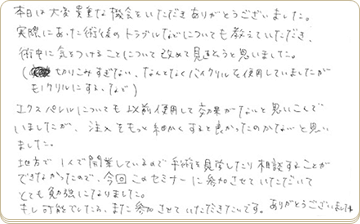 本日は大変貴重な機会をいただきありがとうございました。
実際にあった術後のトラブルなどについても教えていただき、
術中に気をつけることについて改めて見直そうと思いました。
(切りこみすぎない、なんとなくバイクリルを使用していましたが
モノクリルにする、など)
エクスパレルについても以前使用して効果がないと思いこんで
いましたが、注入をもっと細かくすると良かったのかなと思い
ました。
地方で1人で開業しているので手術を見学したり相談することが
できなかったので、今回このセミナーに参加させていただいて
とても勉強になりました。
もし可能でしたら、また参加させていただきたいです。ありがとうございました